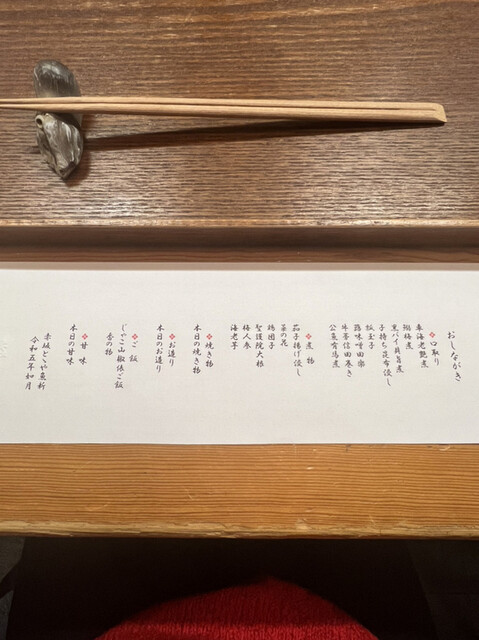 おしながき
口取り
車海老艶煮
陽梅煮
黒バイ貝旨煮
子持ち昆布浸し
板玉子
蕗味噌田楽
牛蒡信田巻き
公魚有馬煮
煮物
茄子揚げ浸し
菜の花
鶏団子
聖護院大根
梅人参
海老芋
焼き物
本日の焼き物
お造り
本日のお造り
ご飯
じゃこ山椒俵ご飯
香の物
甘味
本日の甘味
赤坂とゝや魚新
令和五年如月